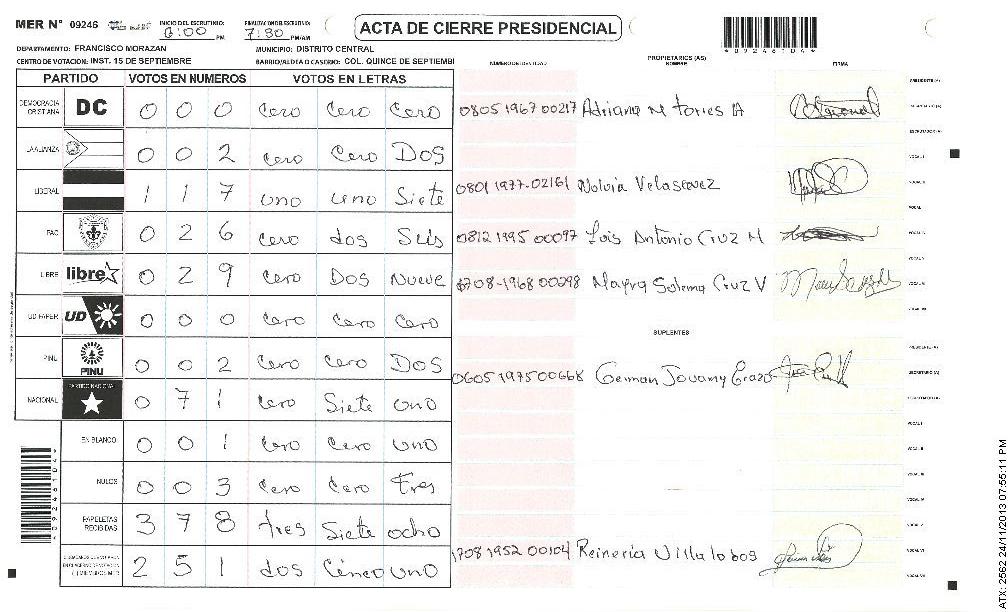 MER N° 09246
INICIO DEL ESCRUTINIO: 6:00 PM
FINALIZACION DEL ESCRUTINIO: 7:30 PM/AM
ACTA DE CIERRE PRESIDENCIAL
*09246104*
DEPARTAMENTO: FRANCISCO MORAZAN MUNICIPIO: DISTRITO CENTRAL
CENTRO DE VOTACION: INST. 15 DE SEPTIEMBRE BARRIO/ALDEA O CASERIO: COL. QUINCE DE SEPTIEMBI
NÚMERO DE IDENTIDAD PROPIETARIOS (AS) NOMBRE FIRMA
PARTIDO VOTOS EN NUMEROS VOTOS EN LETRAS
DEMOCRACIA CRISTIANA DC 0 0 0 Cero Cero Cero
0805 1967 00217 Adriana M Torres A
LA ALIANZA 0 0 2 Cero Cero DOS
LIBERAL 1 1 7 uno uno Siete
0801 1977-02161 Nolvia Velasquez
PAC 0 2 6 Cero dos Seis
0812 1995 00097 Luis Antonio Cruz M
LIBRE libre 0 2 9 Cero Dos Nueve
0708-1968 00298 Mayra Sulema Cruz V
UD FAPER UD 0 0 0 Cero Cero Cero
SUPLENTES
PINU PINU 0 0 2 Cero Cero DOS
0605 1975 00668 German Jovany Erazo
NACIONAL PARTIDO NACIONAL 0 7 1 Cero Siete uno
EN BLANCO 0 0 1 Cero Cero uno
NULOS 0 0 3 Cero Cero Tres
PAPELETAS RECIBIDAS 3 7 8 tres Siete ocho
2 5 1 dos Cinco uno
1708 1952 00104 Reineria Villalobos
ATX: 2562 24/11/2013 07:55:11 PM